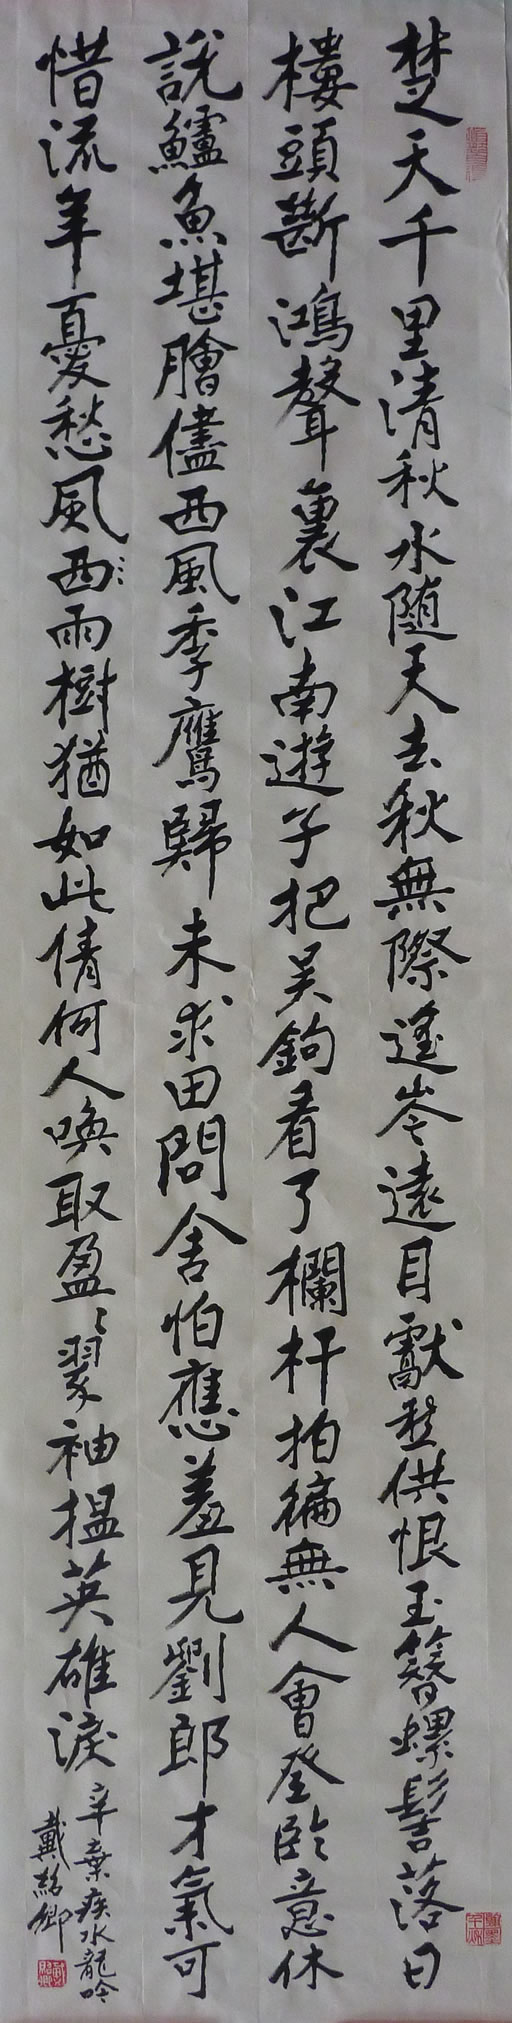 楚天千里清秋水随天去秋無際遥岑遠目獻愁供恨玉簪螺髻落日
樓頭斷鴻聲裏江南遊子把吴鉤看了欄杆拍徧無人會登臨意休
說鱸魚堪膾儘西風季鷹歸未求田問舍怕應羞見劉郎才氣可
惜流年憂愁風西雨樹猶如此倩何人唤取盈盈翠袖揾英雄淚
辛棄疾水龍吟
戴紹卿